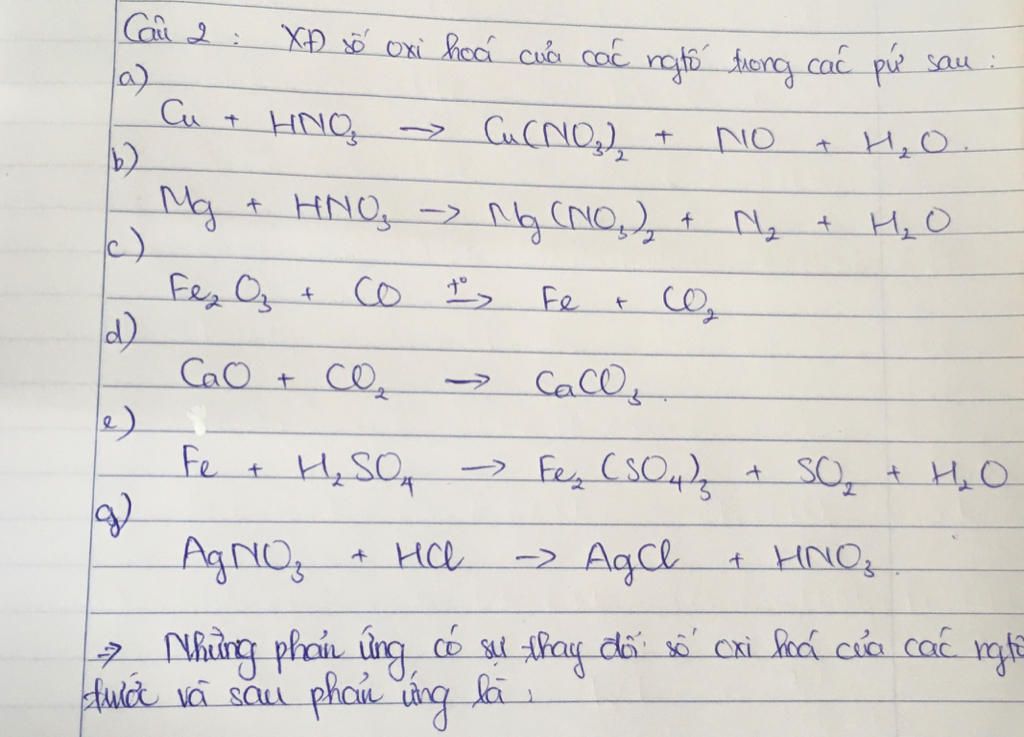 Câu 2 : XĐ số oxi hoá của các ngtố trong các pứ sau :
a)
Cu + HNO₃ → Cu(NO₃)₂ + NO + H₂O.
b)
Mg + HNO₃ → Mg(NO₃)₂ + N₂ + H₂O
c)
Fe₂O₃ + CO t° → Fe + CO₂
d)
CaO + CO₂ → CaCO₃.
e)
Fe + H₂SO₄ → Fe₂(SO₄)₃ + SO₂ + H₂O
g)
AgNO₃ + HCl → AgCl + HNO₃.
⇒ Những phản ứng có sự thay đổi số oxi hoá của các ngtố
trước và sau phản ứng là :